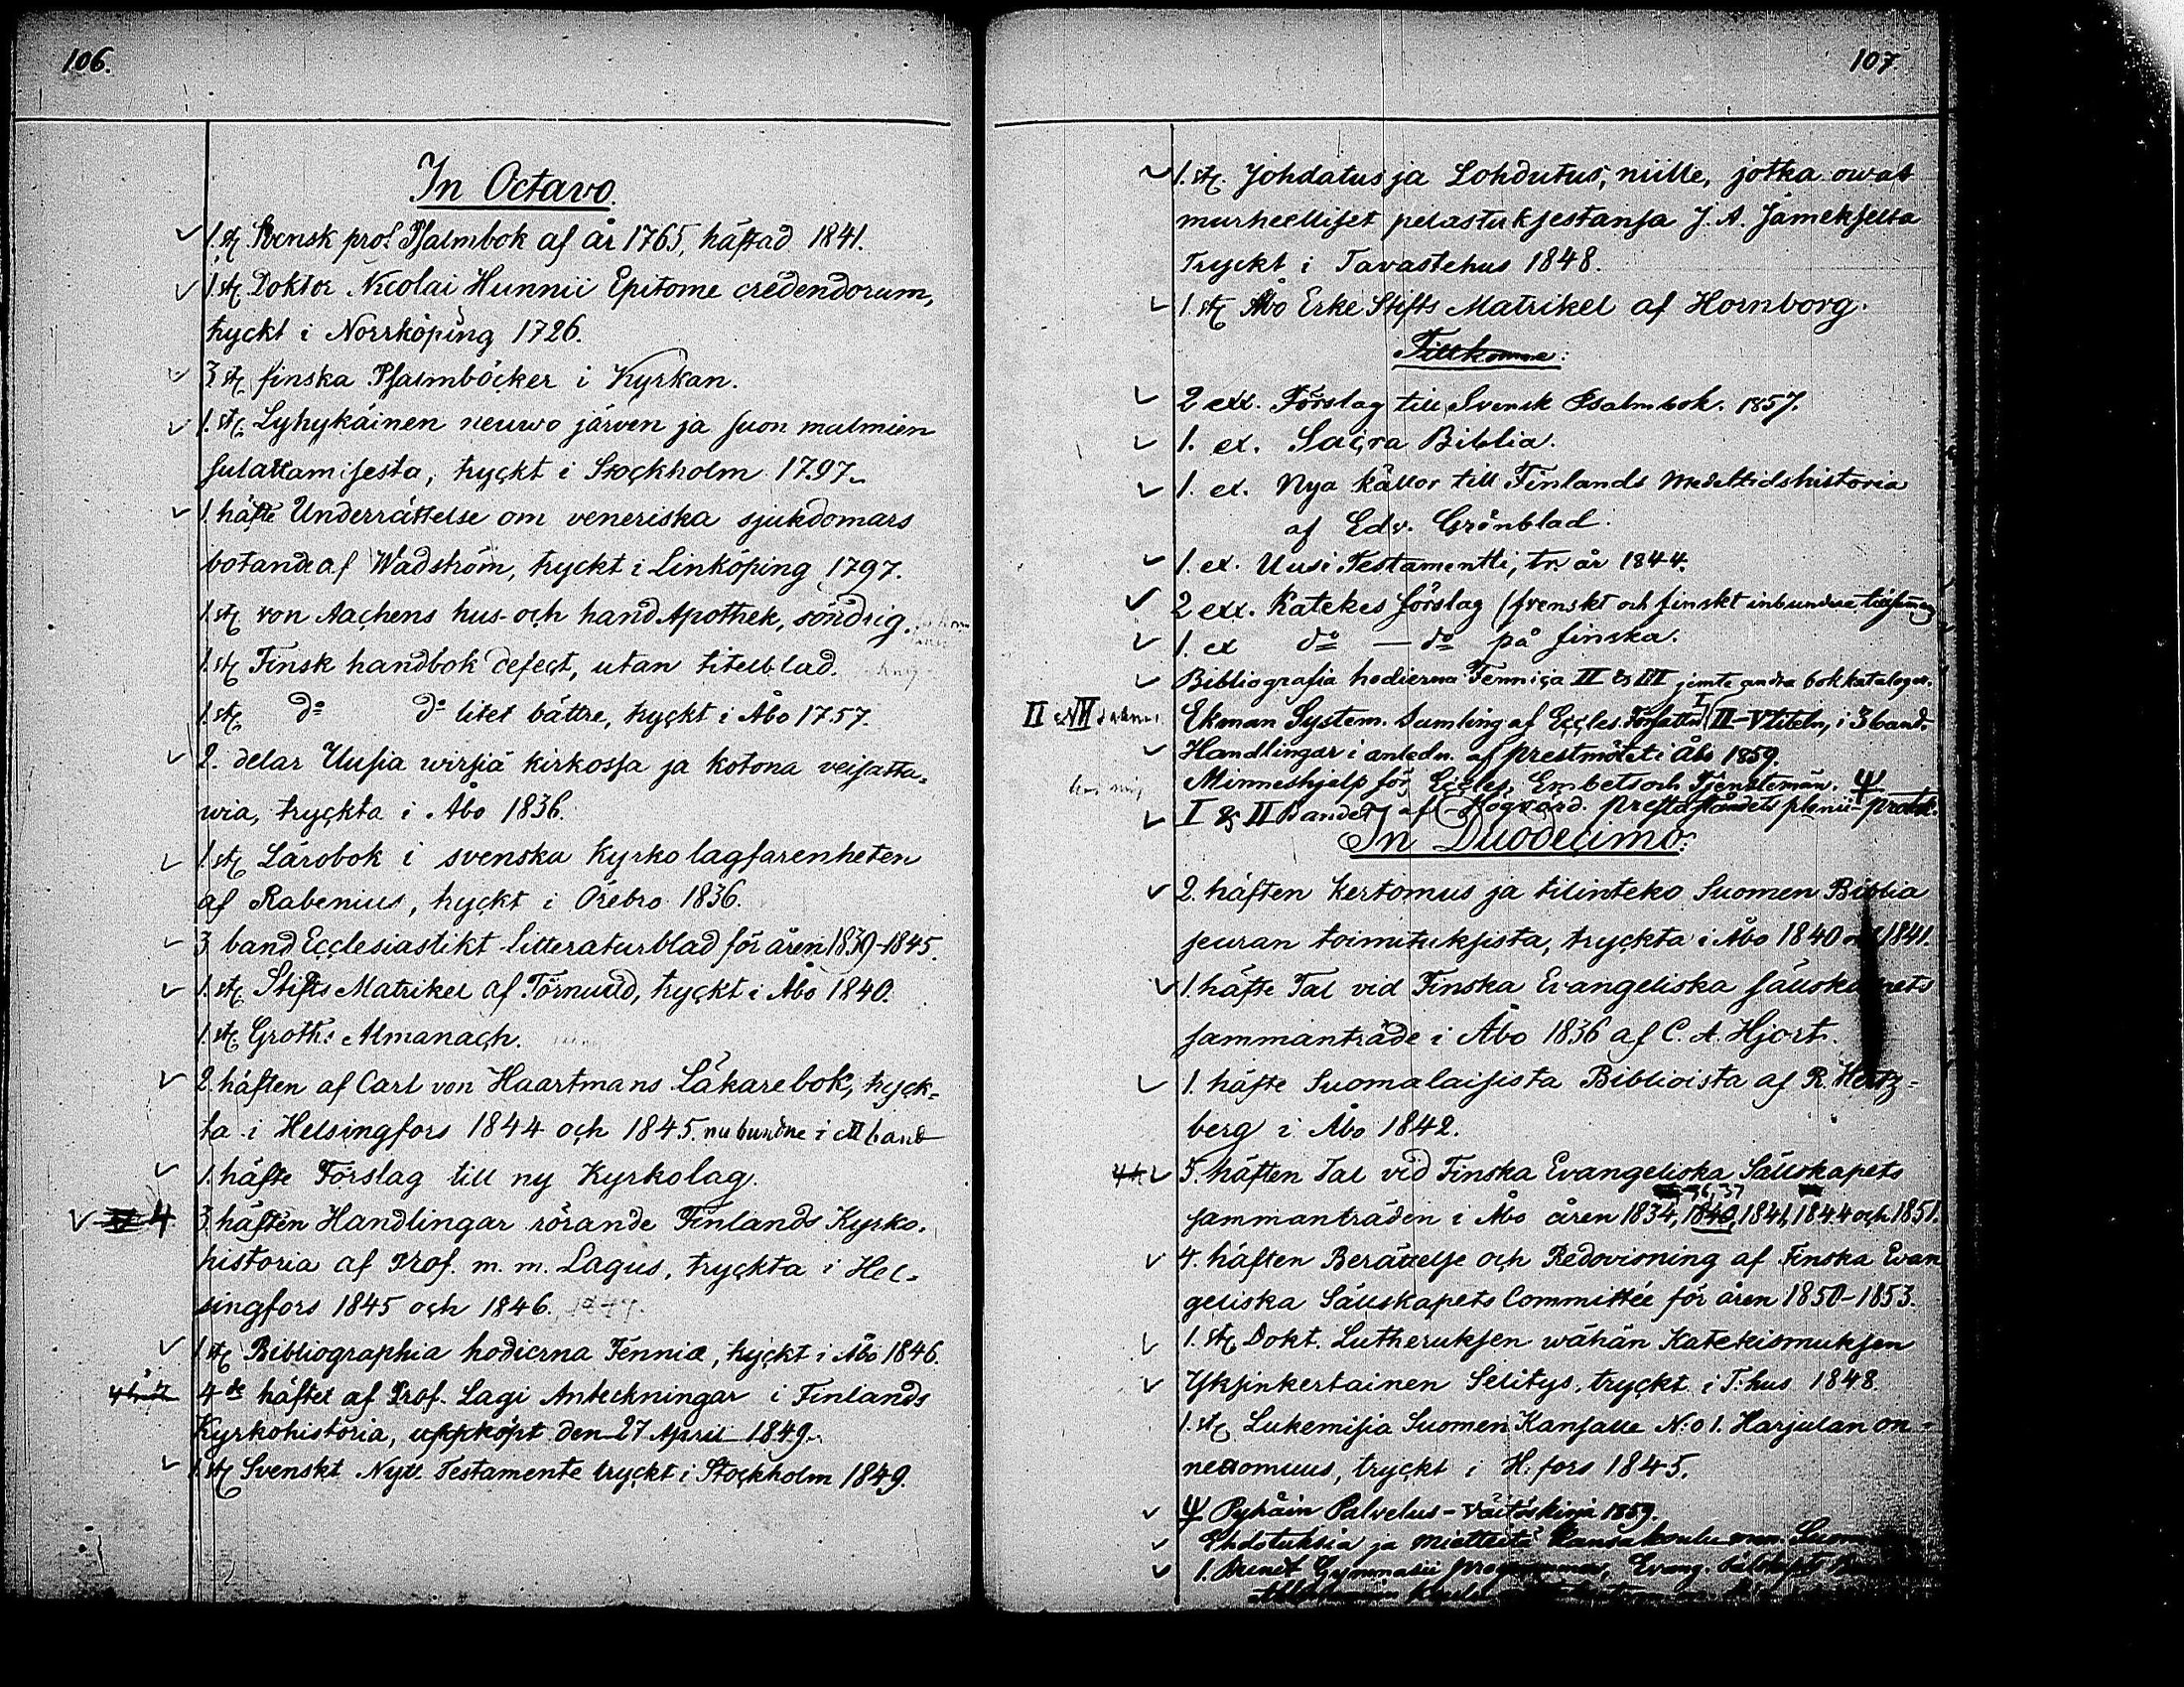 106.
In Octavo.
✓ 1. st. Svensk prof Psalmbok af år 1765, häftad 1841.
✓ 1. st. Doktor Nicolai Hunnii Epitome credendorum,
tryckt i Norrköping 1726.
✓ 3 st. finska Psalmböcker i Kyrkan.
✓ 1. st. Lyhykäinen neuwo järven ja suon malmien
sulattamisesta, tryckt i Stockholm 1797.
✓ 1. häfte Underrättelse om veneriska sjukdomars
botande af Wadström, tryckt i Linköping 1797.
1. st. von Aachens hus- och hand Apothek, söndrig.
1. st. Finsk handbok defect, utan titelblad.
1. st. do do litet bättre, tryckt i Åbo 1757.
✓ 2. delar Uusia wirsiä kirkossa ja kotona veisatta-
wia, tryckta i Åbo 1836.
✓ 1. st. Lärobok i svenska kyrko lagfarenheten
af Rabenius, tryckt i Örebro 1836.
✓ 3 band Ecclesiastikt litteraturblad för åren 1839-1845.
✓ 1. st. Stifts Matrikel af Törnudd, tryckt i Åbo 1840.
1. st. Groths Almanach.
✓ 2. häften af Carl von Haartmans Läkarebok, tryck-
ta i Helsingfors 1844 och 1845. nu bundne i ett band
✓ 1. häfte Förslag till ny Kyrkolag.
✓ 4 3. häften Handlingar rörande Finlands Kyrko-
historia af Prof. m. m. Lagus, tryckta i Hel-
singfors 1845 och 1846. 1847.
✓ 1. st. Bibliographia hodierna Fenniæ, tryckt i Åbo 1846.
4de häftet af Prof. Lagi Anteckningar i Finlands
Kyrkohistoria, uppköpt den 27 April 1849.
✓ 1. st. Svenskt Nytt Testamente tryckt i Stockholm 1849.
107
✓ 1. st. Johdatus ja Lohdutus, niille, jotka owat
murheelliset pelastuksestansa J. A. Jämekseltä
Tryckt i Tavastehus 1848.
✓ 1. st. Åbo Erke Stifts Matrikel af Hornborg.
Tillkomne:
✓ 2 exx. Förslag till Svensk Psalmbok. 1857.
✓ 1. ex. Sacra Biblia.
✓ 1. ex. Nya källor till Finlands Medeltidshistoria
af Edv. Grönblad.
✓ 1. ex. Uusi Testamentti, tr. år 1844.
✓ 2 exx. Katekes förslag (svenskt och finskt inbundna
✓ 1. ex do — do på finska.
✓ Bibliografia hodierna Fennica II & III jemte andra bokkataloger.
II & VII Ekman System. Samling af Eccles. Författn. I II-V titeln, i 3 band.
✓ Handlingar i anledn. af prestmötet i Åbo 1859.
Minneshjelp för Eccles. Embets och Tjenstemän. Ψ
✓ I & II Bandet af Högvörd. presteståndets plenii protok.
In Duodecimo:
✓ 2. häften Kertomus ja tilinteko Suomen Biblia
seuran toimituksista, tryckta i Åbo 1840 och 1841.
✓ 1. häfte Tal vid Finska Evangeliska Sällskapets
sammanträde i Åbo 1836 af C. A. Hjort.
✓ 1. häfte Suomalaisista Biblioista af R. Hertz-
berg i Åbo 1842.
✓ 5. häften Tal vid Finska Evangeliska Sällskapets
36, 37
sammanträden i Åbo åren 1834, 1840, 1841, 1844 och 1851.
✓ 4. häften Berättelse och Redovisning af Finska Evan
geliska Sällskapets Committée för åren 1850-1853.
✓ 1. st. Dokt. Lutheruksen wähän Katekismuksen
✓ Yksinkertainen Selitys, tryckt i T:hus 1848.
1. st. Lukemisia Suomen Kansalle N:o 1. Harjulan on-
nettomuus, tryckt i H:fors 1845.
✓ Ψ Pyhäin Palvelus - Väitöskirja 1859.
✓ Ehdotuksia ja mietteitä
✓ 1. Bundt Gymnasii programmer, Evang.